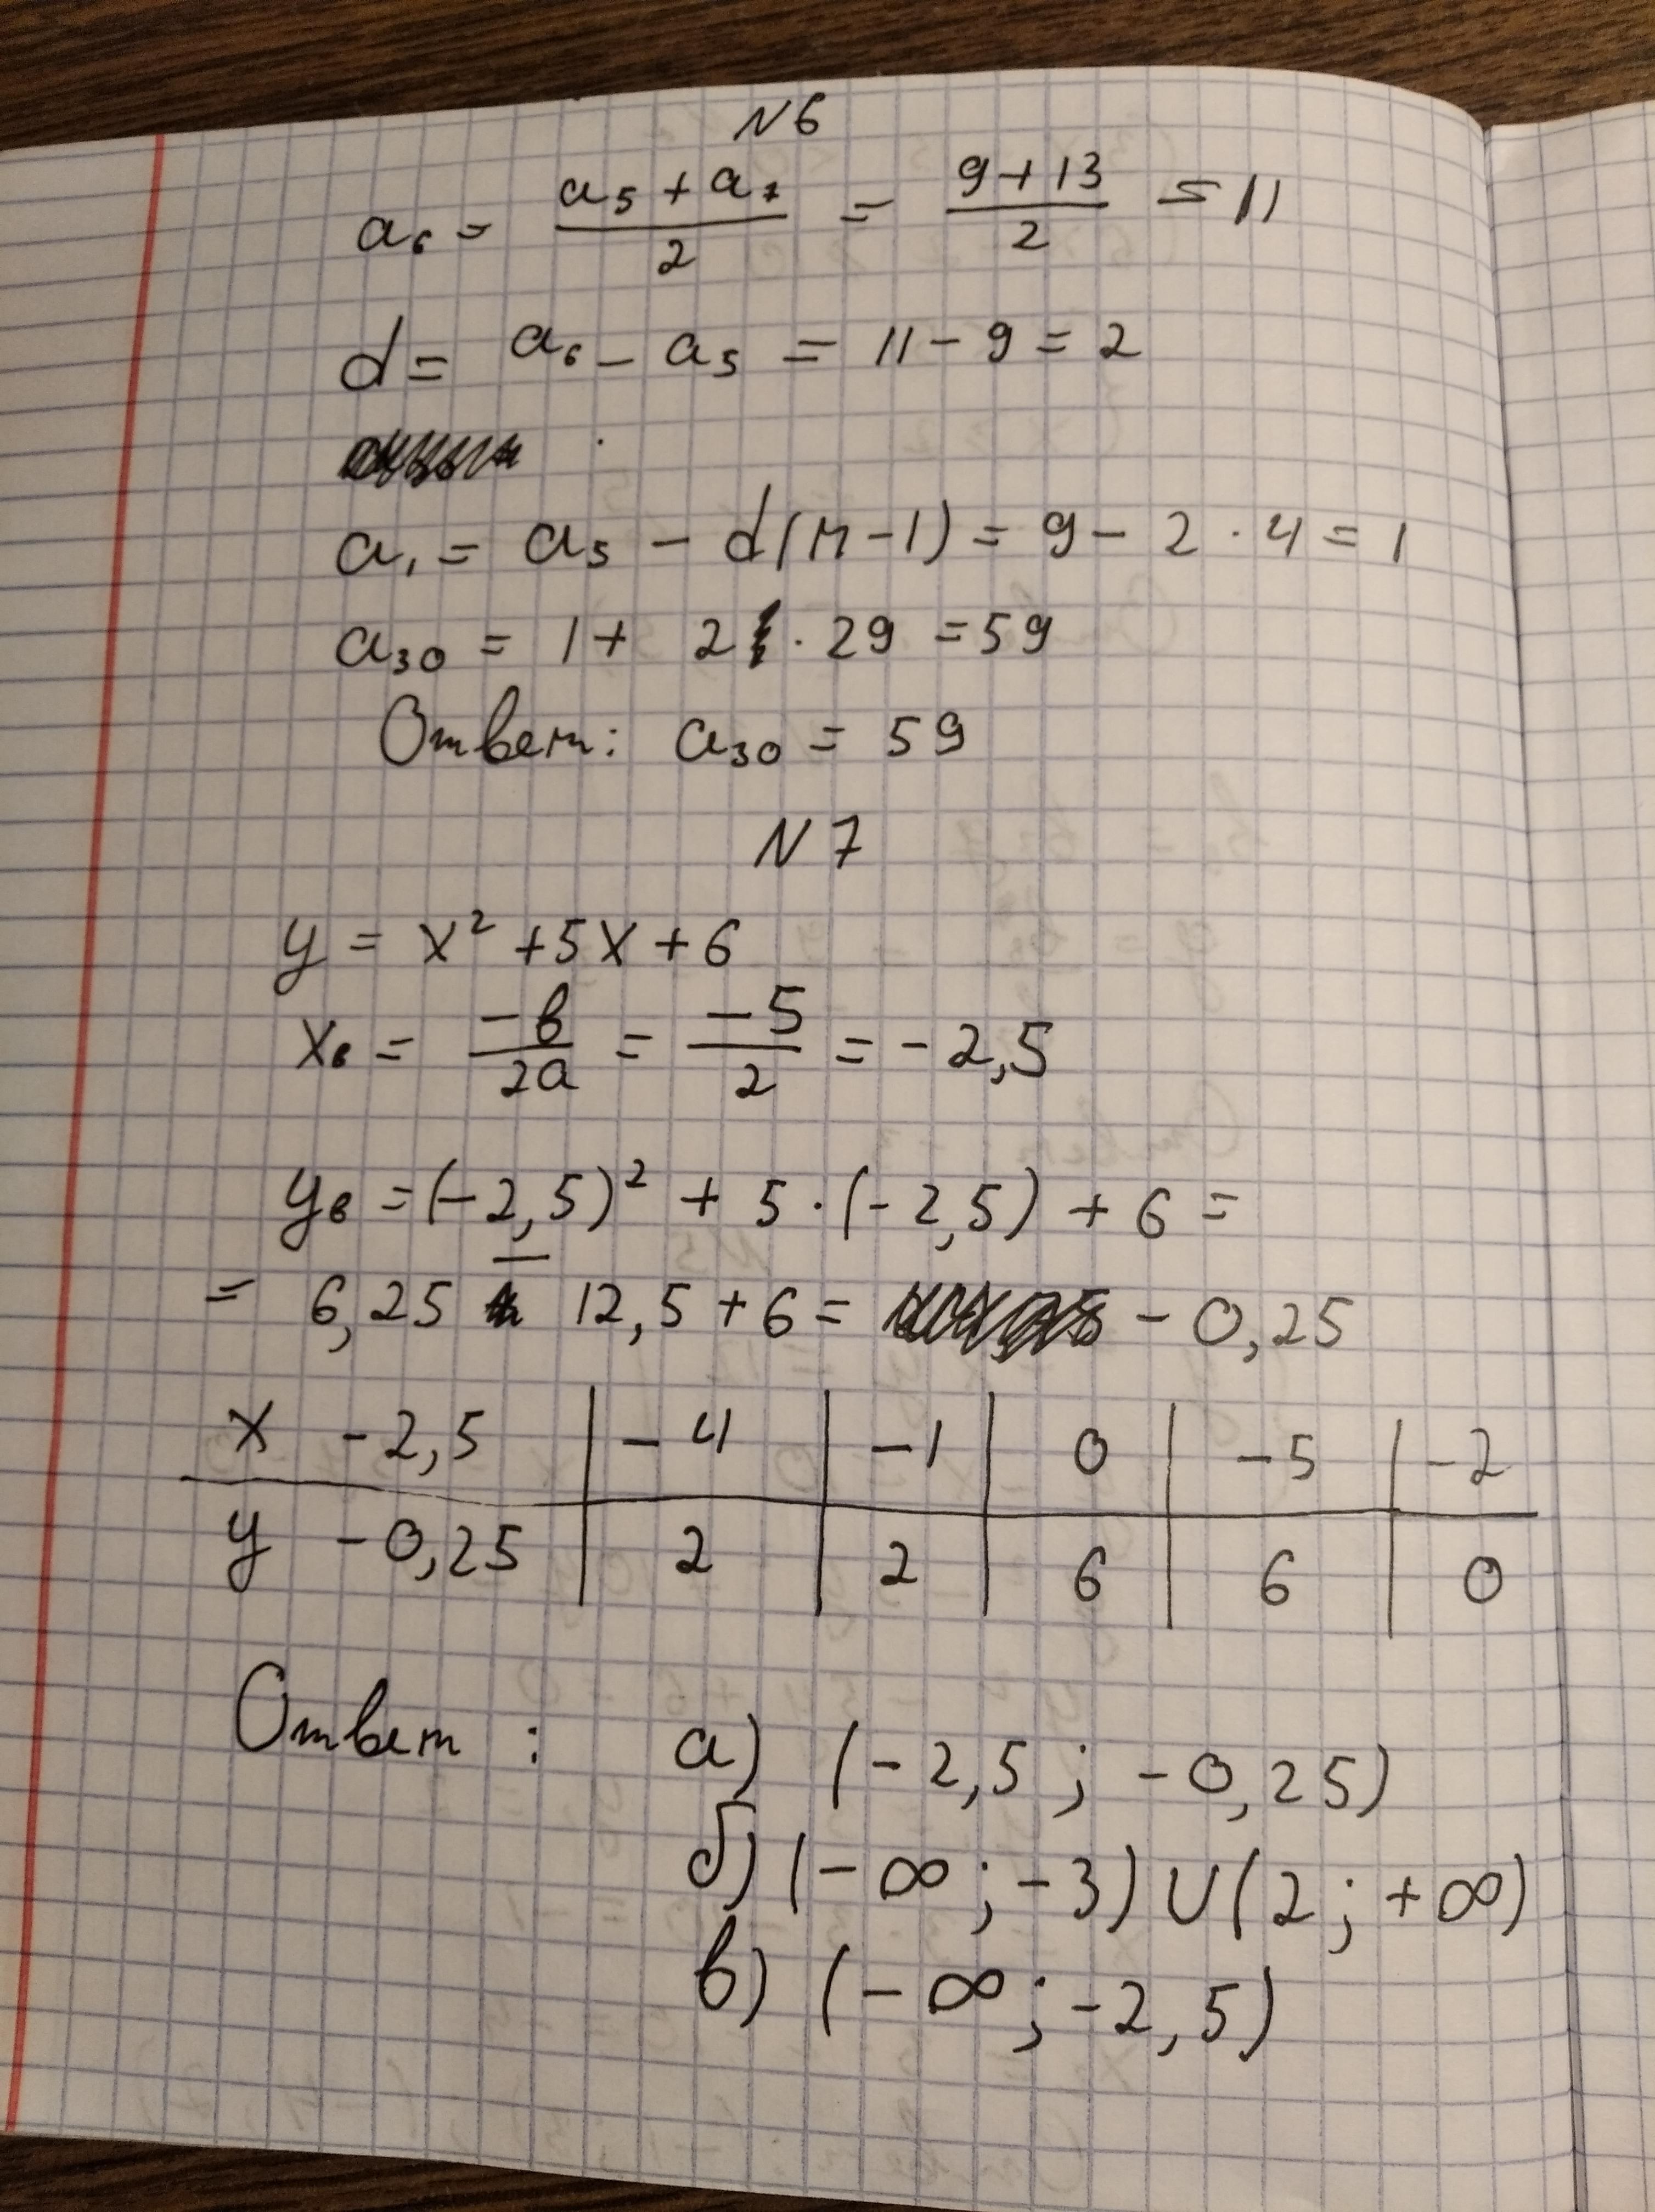 N6
a₆ = (a₅ + a₇)/2 = (9+13)/2 = 11
d = a₆ - a₅ = 11 - 9 = 2
a₁ = a₅ - d(n-1) = 9 - 2 · 4 = 1
a₃₀ = 1 + 2 · 29 = 59
Ответ: a₃₀ = 59
N7
y = x² + 5x + 6
xв = -b/2a = -5/2 = -2,5
yв = (-2,5)² + 5 · (-2,5) + 6 =
= 6,25 - 12,5 + 6 = - 0,25
x -2,5 | -4 | -1 | 0 | -5 | -2
y -0,25 | 2 | 2 | 6 | 6 | 0
Ответ: а) (-2,5 ; -0,25)
б) (-∞ ; -3) ∪ (2 ; +∞)
в) (-∞ ; -2,5)